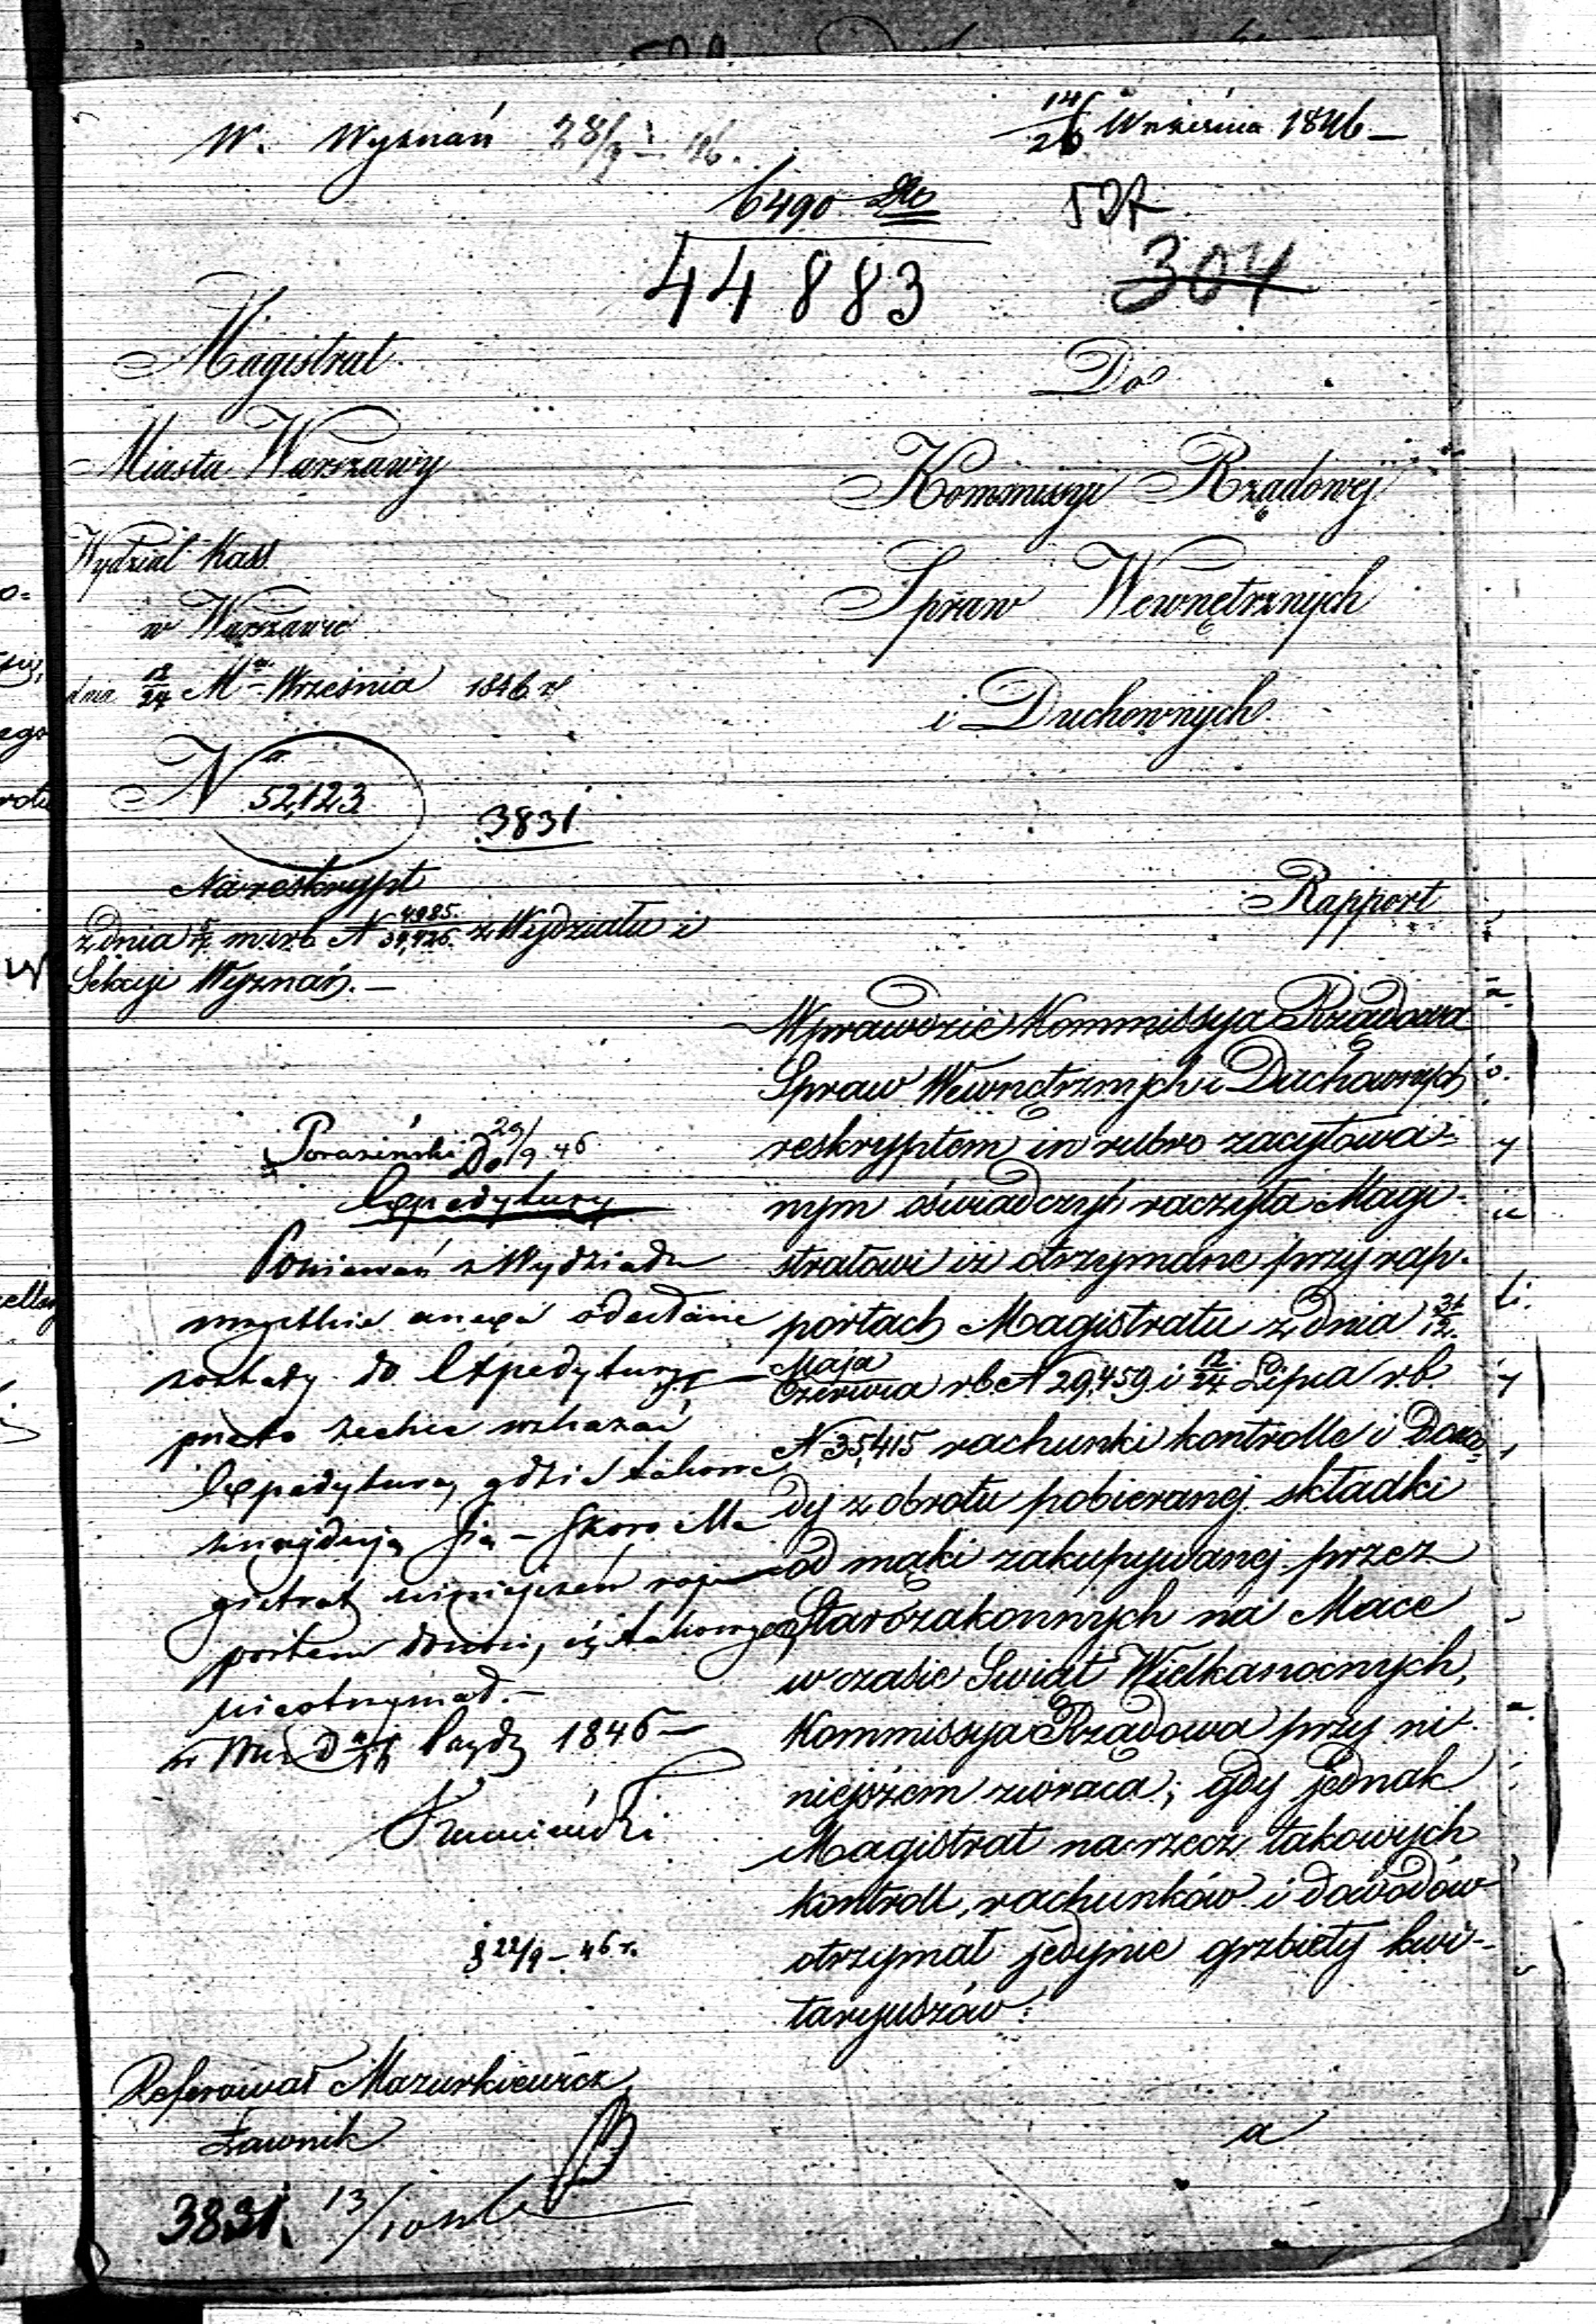 W. Wyznań 28/9 46.
14/26 Września 1846 —
6490
44883
304
Magistrat
Miasta Warszawy
Wydział Kass
w Warszawie
dnia 12/24 Mca Września 1846 r
No 52,123
3831
Na reskrypt
z dnia m. i r. b. N 4985/34,426 z Wydziału i
Sekcyi Wyznań. —
Do
Kommissyi Rządowej
Spraw Wewnętrznych
i Duchownych
Rapport
Wprawdzie Kommissya Rządowa
Spraw Wewnętrznych i Duchownych
reskryptem in rubro zacytowa-
nym oświadczyć raczyła Magi-
stratowi iż otrzymane przy rap-
portach Magistratu z dnia 31/12
Maja/Czerwca r. b. N 29,459 i 12/24 Lipca r. b.
N 35,415 rachunki kontrolle i Dowo-
dy z obrotu pobieranej składki
od mąki zakupywanej przez
Starozakonnych na Mace
w czasie Swiąt Wielkanocnych,
Kommissya Rządowa przy ni-
niejszem zwraca; gdy jednak
Magistrat na rzecz takowych
kontroll, rachunków i dowodów
otrzymał jedynie grzbiety kwi-
taryuszów
a
29/9 46
Do Expedytury
Ponieważ z Wydziału
wszystkie anexa odesłane
zostały do Expedytury
przeto zechce wskazać
Expedytura, gdzie takowe
znajdują się — skoro Ma-
gistrat niniejszem rap-
portem donosi, iż takowych
nieotrzymał. —
1846 —
22/9 — 46 r.
Referował Mazurkiewicz
Ławnik
3831. 13/10